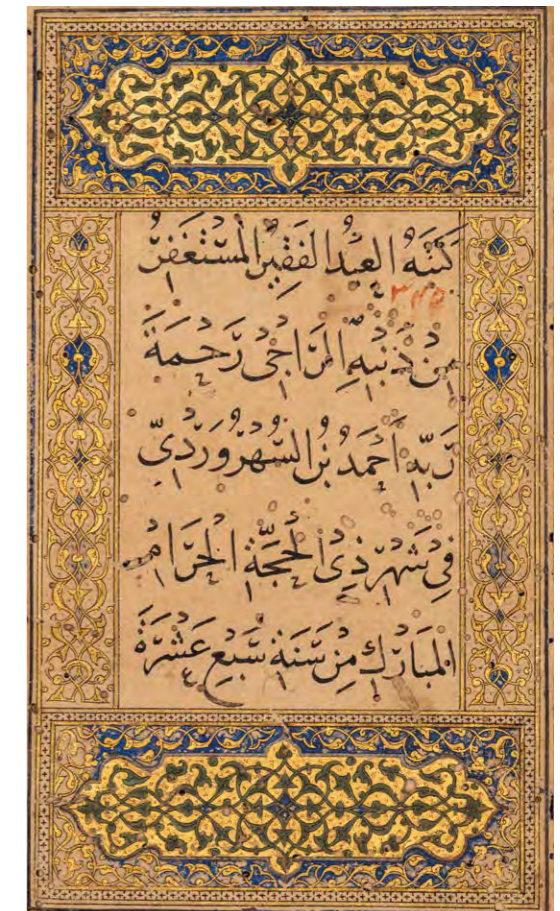 كَتَبَهُ العَبْدُ الفَقِيرُ المُسْتَغْفِرُ
٣٨٥
مِنْ ذُنْبِهِ الرَّاجِىُ رَحْمَةَ
رَبِّهِ اَحْمَدُ بْنُ السُّهْرُورْدِىِّ
فِى شَهْرِ ذِى الْحِجَّةِ الْحَرَامُ
المُبَارَكِ مِنْ سَنَةِ سَبْعِ عَشْرَةَ